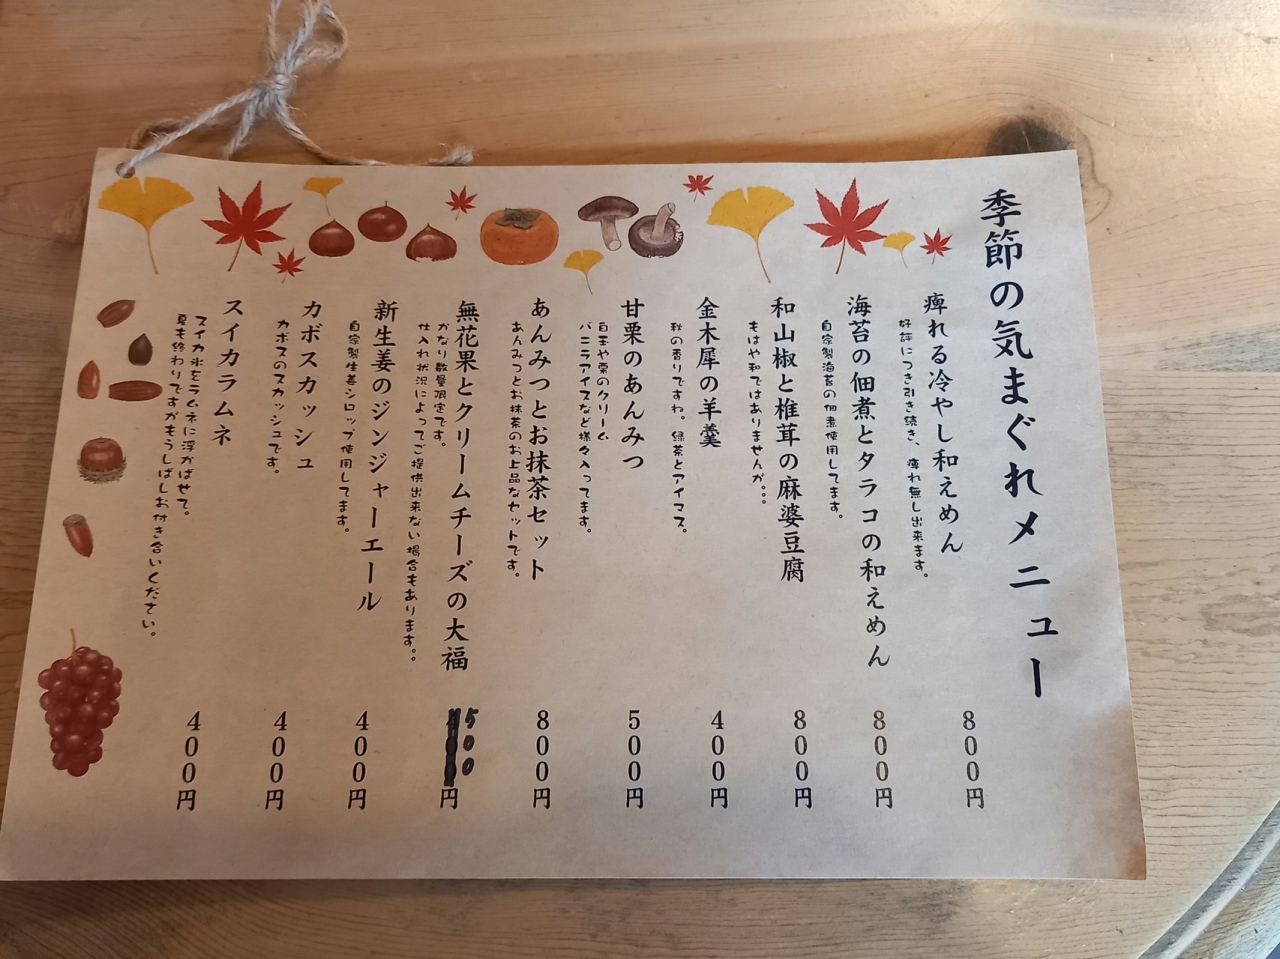 季節の気まぐれメニュー
痺れる冷やし和えめん
好評につき引き続き、痺れ無し出来ます。
800円
海苔の佃煮とタラコの和えめん
自家製海苔の佃煮使用してます。
800円
和山椒と椎茸の麻婆豆腐
もはや和ではありませんが。。。
800円
金木犀の羊羹
秋の香りですね。緑茶とアイマス。
400円
甘栗のあんみつ
白玉や栗のクリーム
バニラアイスなど様々入ってます。
500円
あんみつとお抹茶セット
あんみつとお抹茶のお上品なセットです。
800円
無花果とクリームチーズの大福
かなり数量限定です。
仕入れ状況によってご提供出来ない場合もあります。。
500円
新生姜のジンジャーエール
自家製生姜シロップ使用してます。
400円
カボスカッシュ
カボスのスカッシュです。
400円
スイカラムネ
スイカ氷をラムネに浮かばせて。
夏も終わりですがもうしばしお付き合いください。
400円